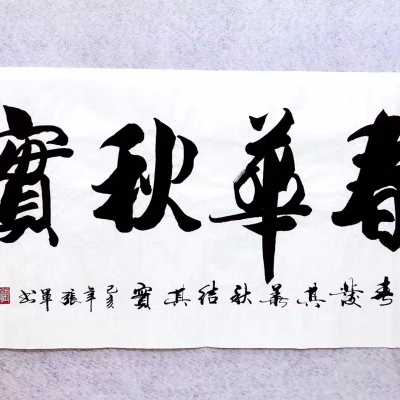 春華秋實
春發其華秋結其實 己亥年張軍书